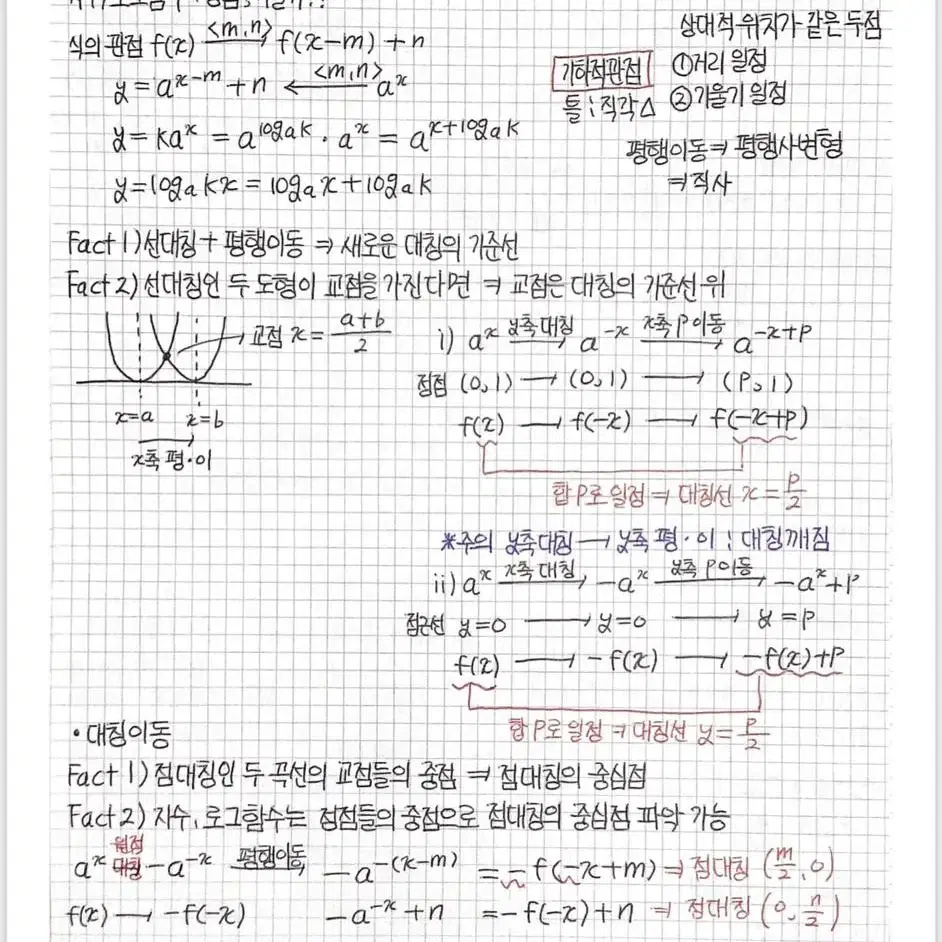 식의 관점 f(x) <m,n>→ f(x-m)+n
y=a^{x-m}+n ←<m,n> a^x
y=ka^x=a^{log_a k}·a^x=a^{x+log_a k}
y=log_a kx=log_a x+log_a k
상대적 위치가 같은 두점
기하적관점 ①거리 일정
틀:직각△ ②기울기 일정
평행이동⇒평행사변형
⇒직사
Fact 1) 선대칭+평행이동 ⇒ 새로운 대칭의 기준선
Fact 2) 선대칭인 두 도형이 교점을 가진다면 ⇒ 교점은 대칭의 기준선 위
교점 x=\frac{a+b}{2}
x=a x=b
x축 평·이
i) a^x y축 대칭→ a^{-x} x축 P이동→ a^{-x+P}
점점 (0,1) → (0,1) → (P,1)
f(x) → f(-x) → f(-x+P)
합 P로 일정 ⇒ 대칭선 x=\frac{P}{2}
*주의 y축대칭→y축 평·이 : 대칭깨짐
ii) a^x x축 대칭→ -a^x y축 P이동→ -a^x+P
점근선 y=0 → y=0 → y=P
f(x) → -f(x) → -f(x)+P
합 P로 일정 ⇒ 대칭선 y=\frac{P}{2}
·대칭이동
Fact 1) 점대칭인 두 곡선의 교점들의 중점 ⇒ 점대칭의 중심점
Fact 2) 지수, 로그함수는 점점들의 중점으로 점대칭의 중심점 파악 가능
a^x 원점 대칭 -a^{-x} 평행이동 -a^{-(x-m)} =-f(-x+m) ⇒ 점대칭 (\frac{m}{2},0)
f(x) → -f(-x) -a^{-x}+n =-f(-x)+n ⇒ 점대칭 (0,\frac{n}{2})